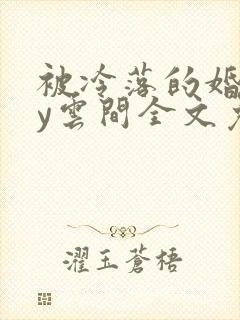 被冷落的婚
y雲間全文
濯玉蒼梧